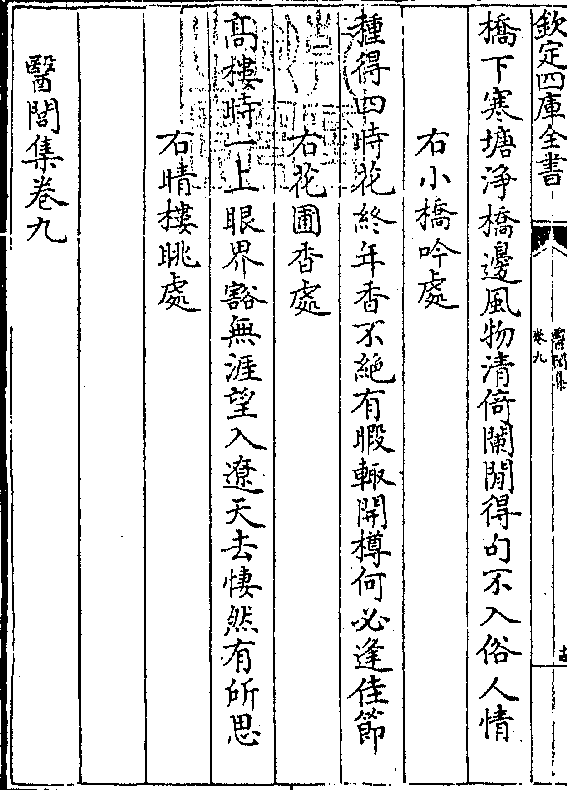 欽定四庫全書
醫閭集
卷九
橋下寒塘淨橋邊風物清倚闌閒得句不入俗人情
右小橋吟處
種得四時花終年香不絶有暇輒開樽何必逢佳節
右花圃香處
高樓時一上眼界豁無涯望入遼天去悽然有所思
右晴樓眺處
醫閭集卷九